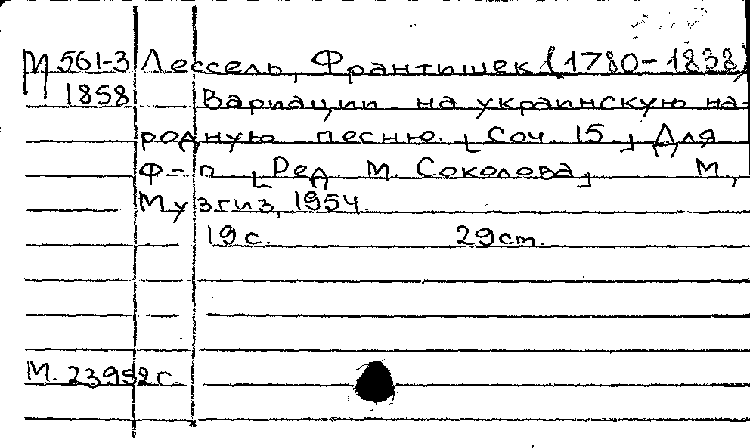 М 561-3 Лессель, Франтишек (1780-1838)
1858 Вариации на украинскую на-
родную песню. [Соч. 15] Для
ф-п [Ред М. Соколова] М.,
Музгиз, 1954
19 с. 29 ст.
М. 23952 г.